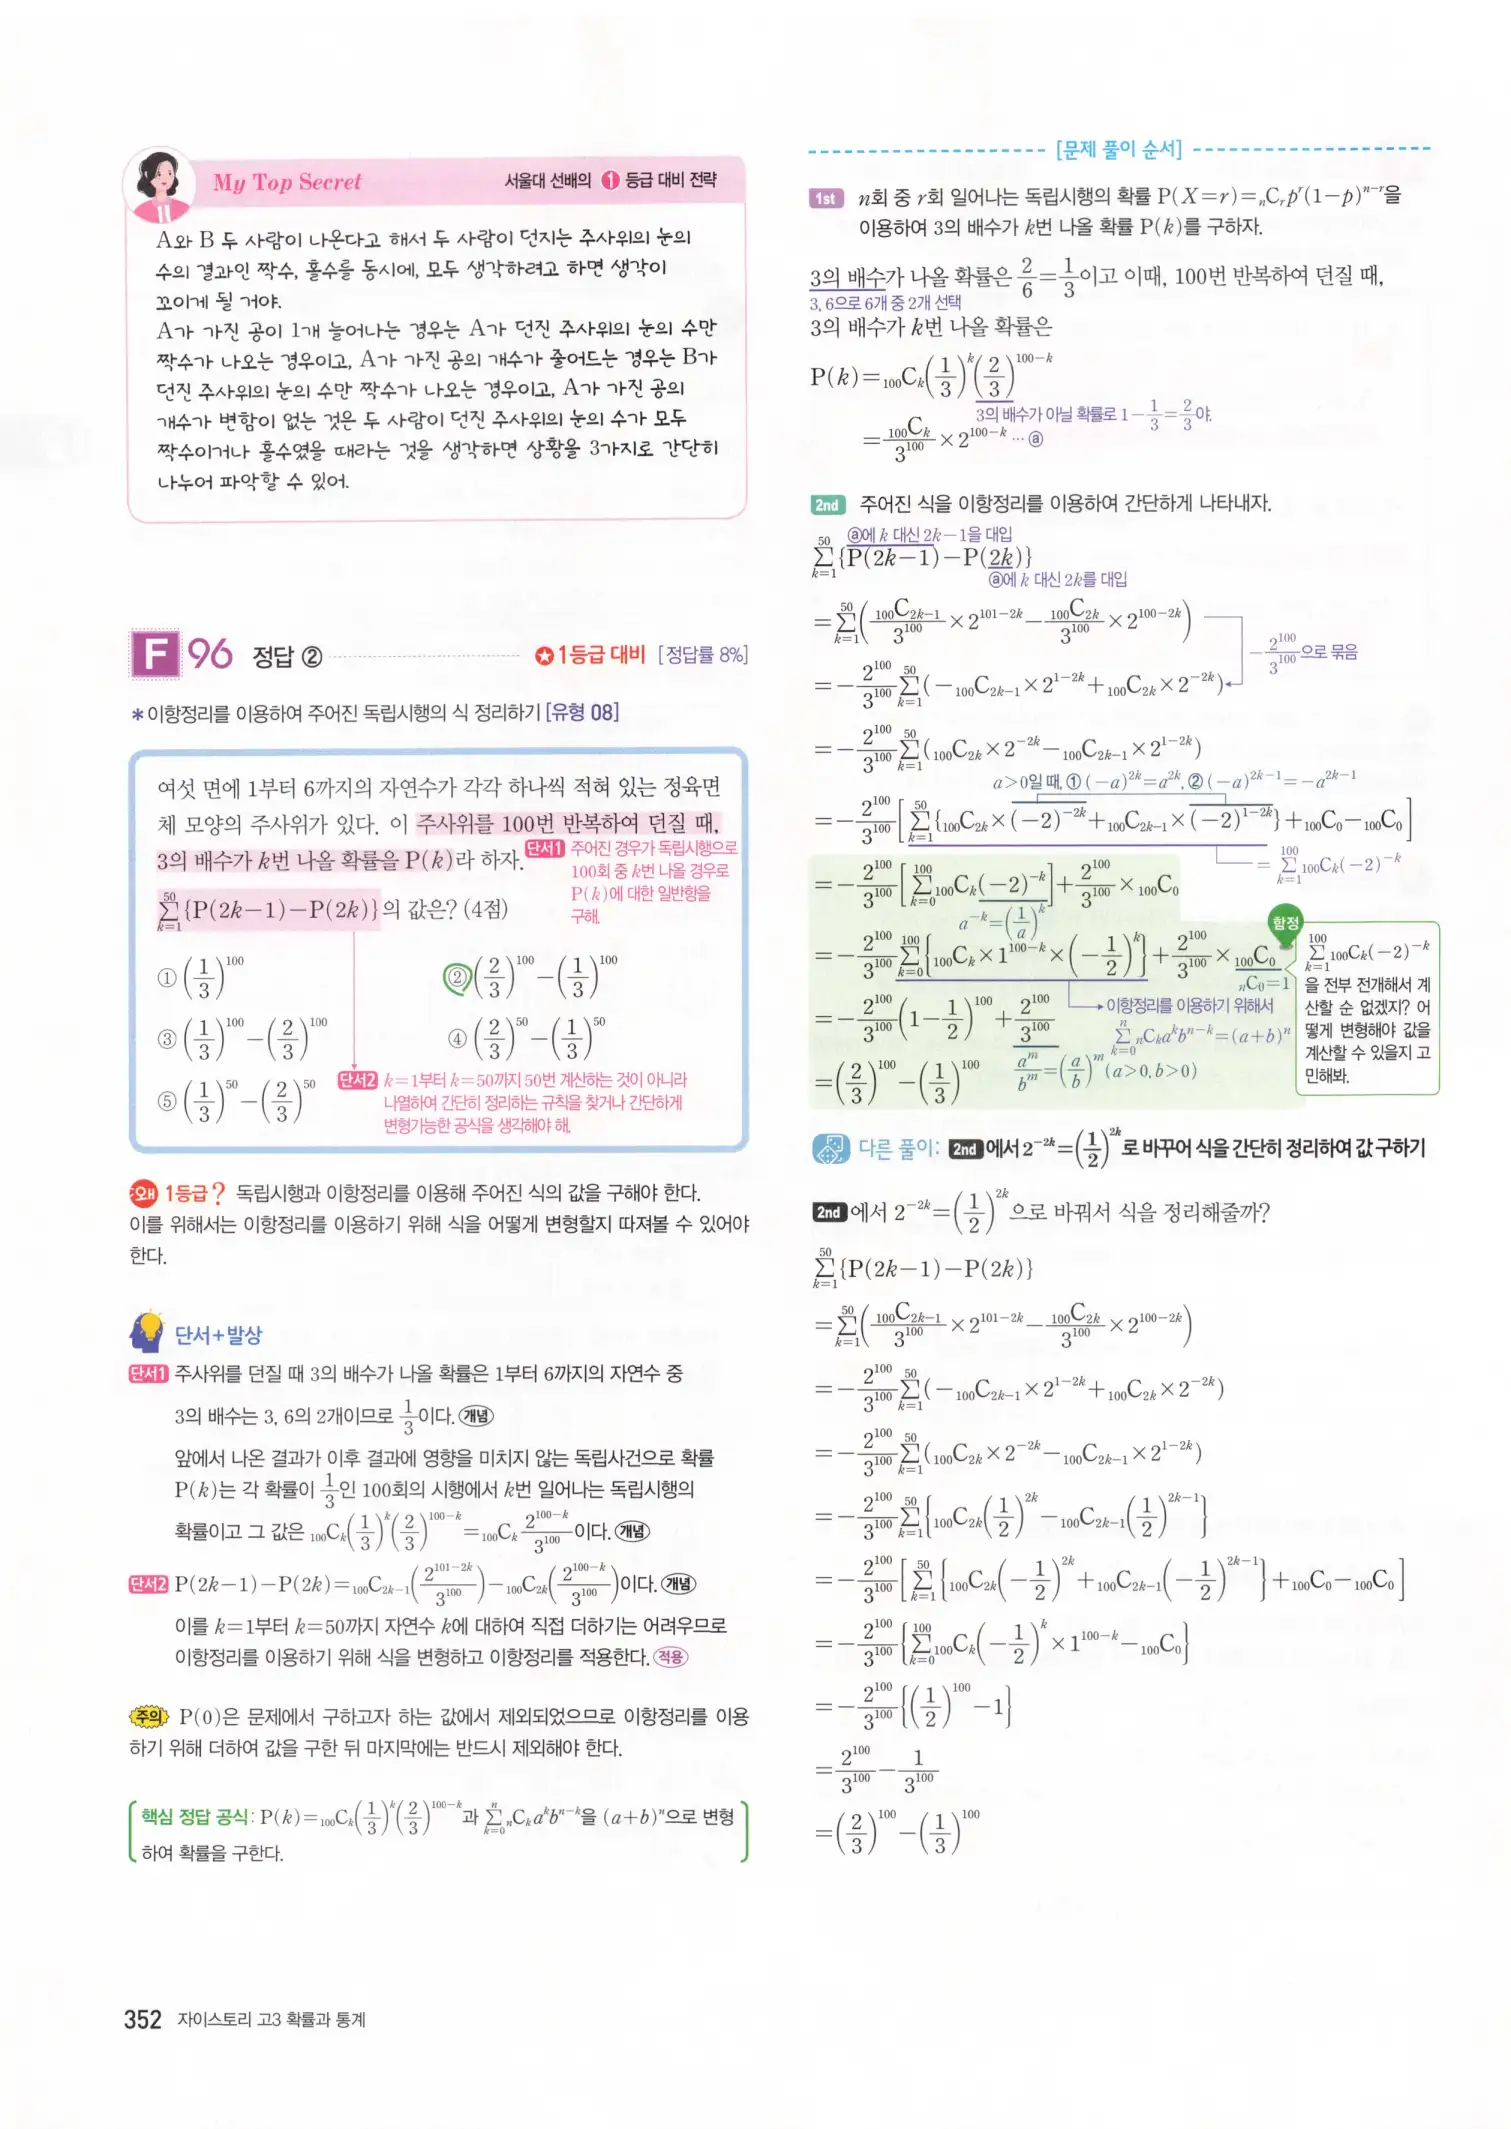 My Top Secret 서울대 선배의 ① 등급 대비 전략
A와 B 두 사람이 나온다고 해서 두 사람이 던지는 주사위의 눈의
수의 결과인 짝수, 홀수를 동시에, 모두 생각하려고 하면 생각이
꼬이게 될 거야.
A가 가진 공이 1개 늘어나는 경우는 A가 던진 주사위의 눈의 수만
짝수가 나오는 경우이고, A가 가진 공의 개수가 줄어드는 경우는 B가
던진 주사위의 눈의 수만 짝수가 나오는 경우이고, A가 가진 공의
개수가 변함이 없는 것은 두 사람이 던진 주사위의 눈의 수가 모두
짝수이거나 홀수였을 때라는 것을 생각하면 상황을 3가지로 간단히
나누어 파악할 수 있어.
F 96 정답 ② ✪ 1등급 대비 [정답률 8%]
*이항정리를 이용하여 주어진 독립시행의 식 정리하기 [유형 08]
여섯 면에 1부터 6까지의 자연수가 각각 하나씩 적혀 있는 정육면
체 모양의 주사위가 있다. 이 주사위를 100번 반복하여 던질 때,
3의 배수가 k번 나올 확률을 P(k)라 하자. 단서1 주어진 경우가 독립시행으로
100회 중 k번 나올 경우로
P(k)에 대한 일반항을
구해.
∑_{k=1}^{50} {P(2k−1)−P(2k)}의 값은? (4점)
① (1/3)^100 ② (2/3)^100 − (1/3)^100
③ (1/3)^100 − (2/3)^100 ④ (2/3)^50 − (1/3)^50
⑤ (1/3)^50 − (2/3)^50
단서2 k=1부터 k=50까지 50번 계산하는 것이 아니라
나열하여 간단히 정리하는 규칙을 찾거나 간단하게
변형가능한 공식을 생각해야 해.
왜 1등급? 독립시행과 이항정리를 이용해 주어진 식의 값을 구해야 한다.
이를 위해서는 이항정리를 이용하기 위해 식을 어떻게 변형할지 따져볼 수 있어야
한다.
단서+발상
단서1 주사위를 던질 때 3의 배수가 나올 확률은 1부터 6까지의 자연수 중
3의 배수는 3, 6의 2개이므로 1/3이다. 개념
앞에서 나온 결과가 이후 결과에 영향을 미치지 않는 독립사건으로 확률
P(k)는 각 확률이 1/3인 100회의 시행에서 k번 일어나는 독립시행의
확률이고 그 값은 ₁₀₀C_k(1/3)^k(2/3)^{100−k} = ₁₀₀C_k 2^{100−k}/3^100이다. 개념
단서2 P(2k−1)−P(2k)=₁₀₀C_{2k−1}(2^{101−2k}/3^100)−₁₀₀C_{2k}(2^{100−k}/3^100)이다. 개념
이를 k=1부터 k=50까지 자연수 k에 대하여 직접 더하기는 어려우므로
이항정리를 이용하기 위해 식을 변형하고 이항정리를 적용한다. 적용
주의 P(0)은 문제에서 구하고자 하는 값에서 제외되었으므로 이항정리를 이용
하기 위해 더하여 값을 구한 뒤 마지막에는 반드시 제외해야 한다.
핵심 정답 공식: P(k)=₁₀₀C_k(1/3)^k(2/3)^{100−k}과 ∑_{k=0}^{n} ₙC_k a^k b^{n−k}을 (a+b)^n으로 변형
하여 확률을 구한다.
352 자이스토리 고3 확률과 통계
[문제 풀이 순서]
1st n회 중 r회 일어나는 독립시행의 확률 P(X=r)=ₙC_r p^r(1−p)^{n−r}을
이용하여 3의 배수가 k번 나올 확률 P(k)를 구하자.
3의 배수가 나올 확률은 2/6=1/3이고 이때, 100번 반복하여 던질 때,
3, 6으로 6개 중 2개 선택
3의 배수가 k번 나올 확률은
P(k)=₁₀₀C_k(1/3)^k(2/3)^{100−k}
3의 배수가 아닐 확률로 1−1/3=2/3야.
=₁₀₀C_k/3^100 × 2^{100−k} ⋯ ⓐ
2nd 주어진 식을 이항정리를 이용하여 간단하게 나타내자.
ⓐ에 k 대신 2k−1을 대입
∑_{k=1}^{50} {P(2k−1)−P(2k)}
ⓐ에 k 대신 2k를 대입
=∑_{k=1}^{50} (₁₀₀C_{2k−1}/3^100 × 2^{101−2k} − ₁₀₀C_{2k}/3^100 × 2^{100−2k})
−2^100/3^100으로 묶음
=−2^100/3^100 ∑_{k=1}^{50} (−₁₀₀C_{2k−1}×2^{1−2k}+₁₀₀C_{2k}×2^{−2k})
=−2^100/3^100 ∑_{k=1}^{50} (₁₀₀C_{2k}×2^{−2k}−₁₀₀C_{2k−1}×2^{1−2k})
a>0일 때, ① (−a)^{2k}=a^{2k}, ② (−a)^{2k−1}=−a^{2k−1}
=−2^100/3^100 [∑_{k=1}^{50} {₁₀₀C_{2k}×(−2)^{−2k}+₁₀₀C_{2k−1}×(−2)^{1−2k}}+₁₀₀C₀−₁₀₀C₀]
=∑_{k=1}^{100} ₁₀₀C_k(−2)^{−k}
=−2^100/3^100 [∑_{k=0}^{100} ₁₀₀C_k(−2)^{−k}]+2^100/3^100 × ₁₀₀C₀
a^{−k}=(1/a)^k
=−2^100/3^100 ∑_{k=0}^{100} {₁₀₀C_k×1^{100−k}×(−1/2)^k}+2^100/3^100 × ₁₀₀C₀
ₙC₀=1
=−2^100/3^100 (1−1/2)^100+2^100/3^100
이항정리를 이용하기 위해서
∑_{k=0}^{n} ₙC_k a^k b^{n−k}=(a+b)^n
=(2/3)^100−(1/3)^100
a^m/b^m=(a/b)^m (a>0, b>0)
함정
∑_{k=1}^{100} ₁₀₀C_k(−2)^{−k}
을 전부 전개해서 계
산할 순 없겠지? 어
떻게 변형해야 값을
계산할 수 있을지 고
민해봐.
다른 풀이: 2nd에서 2^{−2k}=(1/2)^{2k}로 바꾸어 식을 간단히 정리하여 값 구하기
2nd에서 2^{−2k}=(1/2)^{2k}으로 바꿔서 식을 정리해줄까?
∑_{k=1}^{50} {P(2k−1)−P(2k)}
=∑_{k=1}^{50} (₁₀₀C_{2k−1}/3^100 × 2^{101−2k} − ₁₀₀C_{2k}/3^100 × 2^{100−2k})
=−2^100/3^100 ∑_{k=1}^{50} (−₁₀₀C_{2k−1}×2^{1−2k}+₁₀₀C_{2k}×2^{−2k})
=−2^100/3^100 ∑_{k=1}^{50} (₁₀₀C_{2k}×2^{−2k}−₁₀₀C_{2k−1}×2^{1−2k})
=−2^100/3^100 ∑_{k=1}^{50} {₁₀₀C_{2k}(1/2)^{2k}−₁₀₀C_{2k−1}(1/2)^{2k−1}}
=−2^100/3^100 [∑_{k=1}^{50} {₁₀₀C_{2k}(−1/2)^{2k}+₁₀₀C_{2k−1}(−1/2)^{2k−1}}+₁₀₀C₀−₁₀₀C₀]
=−2^100/3^100 {∑_{k=0}^{100} ₁₀₀C_k(−1/2)^k×1^{100−k}−₁₀₀C₀}
=−2^100/3^100 {(1/2)^100−1}
=2^100/3^100−1/3^100
=(2/3)^100−(1/3)^100